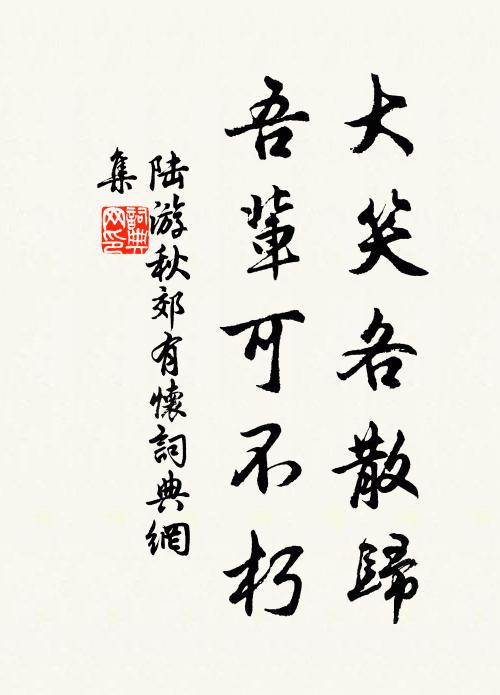 大笑各散歸
吾輩可不朽
陆游秋郊有懷詞典網
集
詞典网印